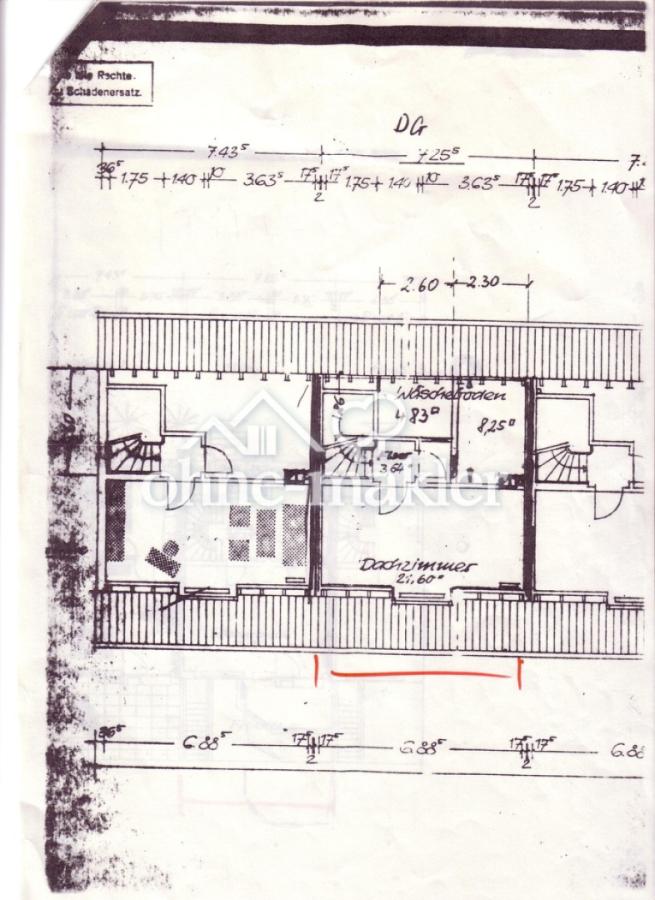 Alle Rechte.
Schadenersatz.
DG
7.43⁵ 7.25⁵ 7.
36⁵ 1.75 1.40 10 3.63⁵ 17⁵ 17⁵ 1.75 1.40 10 3.63⁵ 17⁵ 17⁵ 1.75 1.40
2 2
2.60 2.30
Wäscheboden
4.83 8,25
3.64
ohne-makler
Dachzimmer
21,60
36⁵ 6.88⁵ 17⁵ 17⁵ 6.88⁵ 17⁵ 17⁵ 6.88
2 2